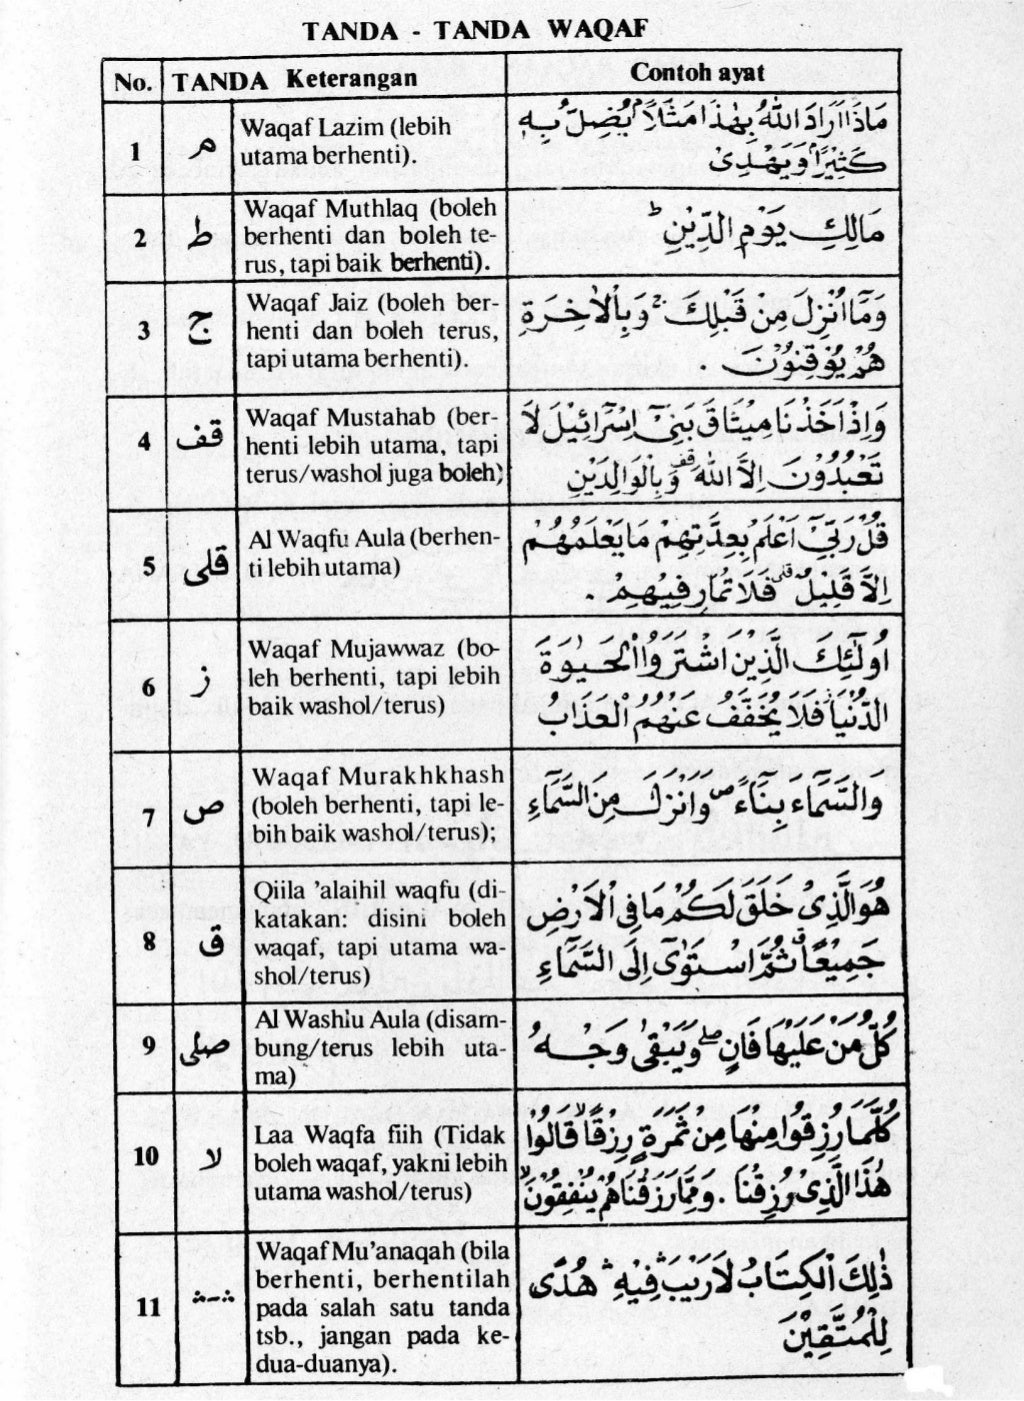 TANDA - TANDA WAQAF
No. TANDA Keterangan Contoh ayat
1 م Waqaf Lazim (lebih
utama berhenti).
مَاذَا اَرَادَ اللهُ بِهٰذَا مَثَلًا ۘ يُضِلُّ بِهٖ
كَثِيْرًا وَيَهْدِىْ
2 ط Waqaf Muthlaq (boleh
berhenti dan boleh te-
rus, tapi baik berhenti).
مَالِكِ يَوْمِ الدِّيْنِ ؕ
3 ج Waqaf Jaiz (boleh ber-
henti dan boleh terus,
tapi utama berhenti).
وَمَٓا اُنْزِلَ مِنْ قَبْلِكَ ۚ وَبِالْاٰخِرَةِ
هُمْ يُوْقِنُوْنَ .
4 قف Waqaf Mustahab (ber-
henti lebih utama, tapi
terus/washol juga boleh)
وَاِذْ اَخَذْنَا مِيْثَاقَ بَنِيْٓ اِسْرَٓائِيْلَ لَا
تَعْبُدُوْنَ اِلَّا اللهَ قف وَبِالْوَالِدَيْنِ
5 قلى Al Waqfu Aula (berhen-
ti lebih utama)
قُلْ رَبِّيْٓ اَعْلَمُ بِعِدَّتِهِمْ مَا يَعْلَمُهُمْ
اِلَّا قَلِيْلٌ ۗ فَلَا تُمَارِ فِيْهِمْ .
6 ز Waqaf Mujawwaz (bo-
leh berhenti, tapi lebih
baik washol/terus)
اُولٰٓئِكَ الَّذِيْنَ اشْتَرَوُا الْحَيٰوةَ
الدُّنْيَا ز فَلَا يُخَفَّفُ عَنْهُمُ الْعَذَابُ
7 ص Waqaf Murakhkhash
(boleh berhenti, tapi le-
bih baik washol/terus);
وَالسَّمَٓاءَ بِنَٓاءً ص وَاَنْزَلَ مِنَ السَّمَٓاءِ
8 ق Qiila 'alaihil waqfu (di-
katakan: disini boleh
waqaf, tapi utama wa-
shol/terus)
هُوَ الَّذِىْ خَلَقَ لَكُمْ مَا فِى الْاَرْضِ
جَمِيْعًا ق ثُمَّ اسْتَوٰٓى اِلَى السَّمَٓاءِ
9 صلى Al Washlu Aula (disam-
bung/terus lebih uta-
ma)
كُلُّ مَنْ عَلَيْهَا فَانٍ ۖ وَيَبْقٰى وَجْهُ
10 لا Laa Waqfa fiih (Tidak
boleh waqaf, yakni lebih
utama washol/terus)
كُلَّمَا رُزِقُوْا مِنْهَا مِنْ ثَمَرَةٍ رِزْقًا ۙ قَالُوْا
هٰذَا الَّذِىْ رُزِقْنَا . وَمِمَّا رَزَقْنَاهُمْ يُنْفِقُوْنَ ۙ
11 ۛ - ۛ Waqaf Mu'anaqah (bila
berhenti, berhentilah
pada salah satu tanda
tsb., jangan pada ke-
dua-duanya).
ذٰلِكَ الْكِتَابُ لَا رَيْبَ ۛ فِيْهِ ۛ هُدًى
لِلْمُتَّقِيْنَ